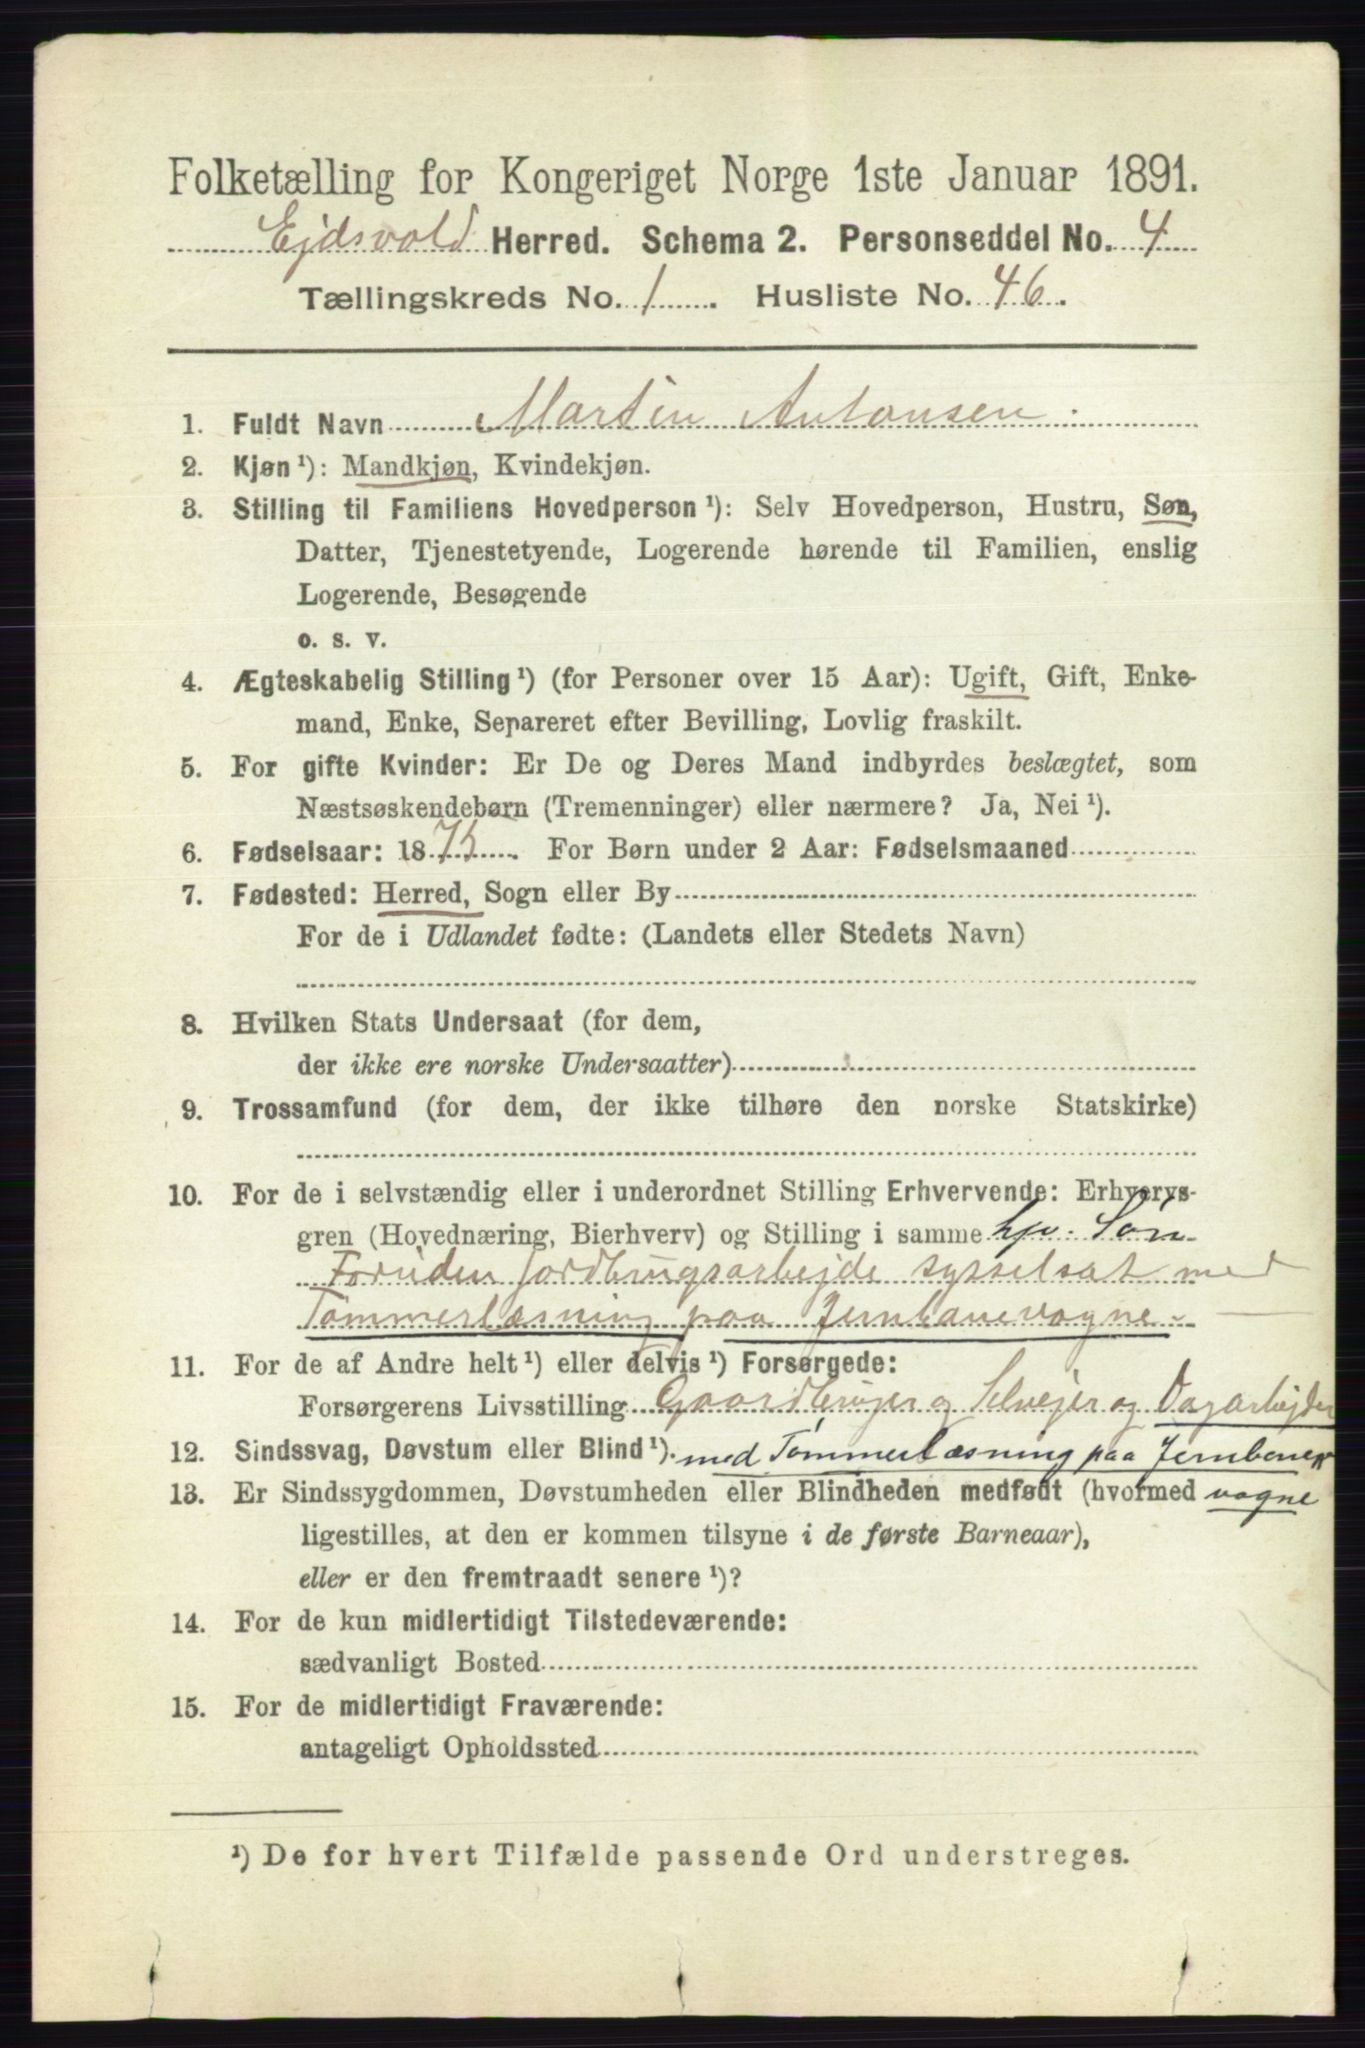 Folketælling for Kongeriget Norge 1ste Januar 1891.
Ejdsvold Herred. Schema 2. Personseddel No. 4
Tællingskreds No. 1. Husliste No. 46.
1. Fuldt Navn Martin Antonsen.
2. Kjøn ¹): Mandkjøn, Kvindekjøn.
3. Stilling til Familiens Hovedperson ¹): Selv Hovedperson, Hustru, Søn,
Datter, Tjenestetyende, Logerende hørende til Familien, enslig
Logerende, Besøgende
o. s. v.
4. Ægteskabelig Stilling ¹) (for Personer over 15 Aar): Ugift, Gift, Enke-
mand, Enke, Separeret efter Bevilling, Lovlig fraskilt.
5. For gifte Kvinder: Er De og Deres Mand indbyrdes beslægtet, som
Næstsøskendebørn (Tremenninger) eller nærmere? Ja, Nei ¹).
6. Fødselsaar: 1875. For Børn under 2 Aar: Fødselsmaaned
7. Fødested: Herred, Sogn eller By
For de i Udlandet fødte: (Landets eller Stedets Navn)
8. Hvilken Stats Undersaat (for dem,
der ikke ere norske Undersaatter)
9. Trossamfund (for dem, der ikke tilhøre den norske Statskirke)
10. For de i selvstændig eller i underordnet Stilling Erhvervende: Erhverys-
gren (Hovednæring, Bierhverv) og Stilling i samme hjv. Søn
Foruden Jordbrugsarbejde sysselsat med
Tømmerlæsning paa Jernbanevogne. —
11. For de af Andre helt ¹) eller delvis ¹) Forsørgede:
Forsørgerens Livsstilling Gaardbruger og Selvejer og Dagarbejder
12. Sindssvag, Døvstum eller Blind ¹). med Tømmerlæsning paa Jernbane-
13. Er Sindssygdommen, Døvstumheden eller Blindheden medfødt (hvormed vogne
ligestilles, at den er kommen tilsyne i de første Barneaar),
eller er den fremtraadt senere ¹)?
14. For de kun midlertidigt Tilstedeværende:
sædvanligt Bosted
15. For de midlertidigt Fraværende:
antageligt Opholdssted
¹) De for hvert Tilfælde passende Ord understreges.